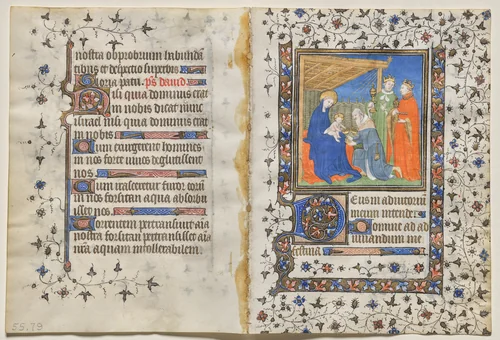 nostra obprobrium habunda
tibus et despectio superbis
Gloria patri. ps david
Nisi quia dominus erat
in nobis dicat nunc
israel nisi quia dominus erat
in nobis
Cum exurgerent homines
in nos forte vivos deglutissent
nos
Cum irasceretur furor eorum
in nos forsitan aqua absorbu
isset nos
Torrentem pertransivit aia
nostra forsitan pertransisset aia
nostra aquam intollerabilem
55.79
Deus in adiutorium
meum intende
Domine ad ad
iuvandum me
festina